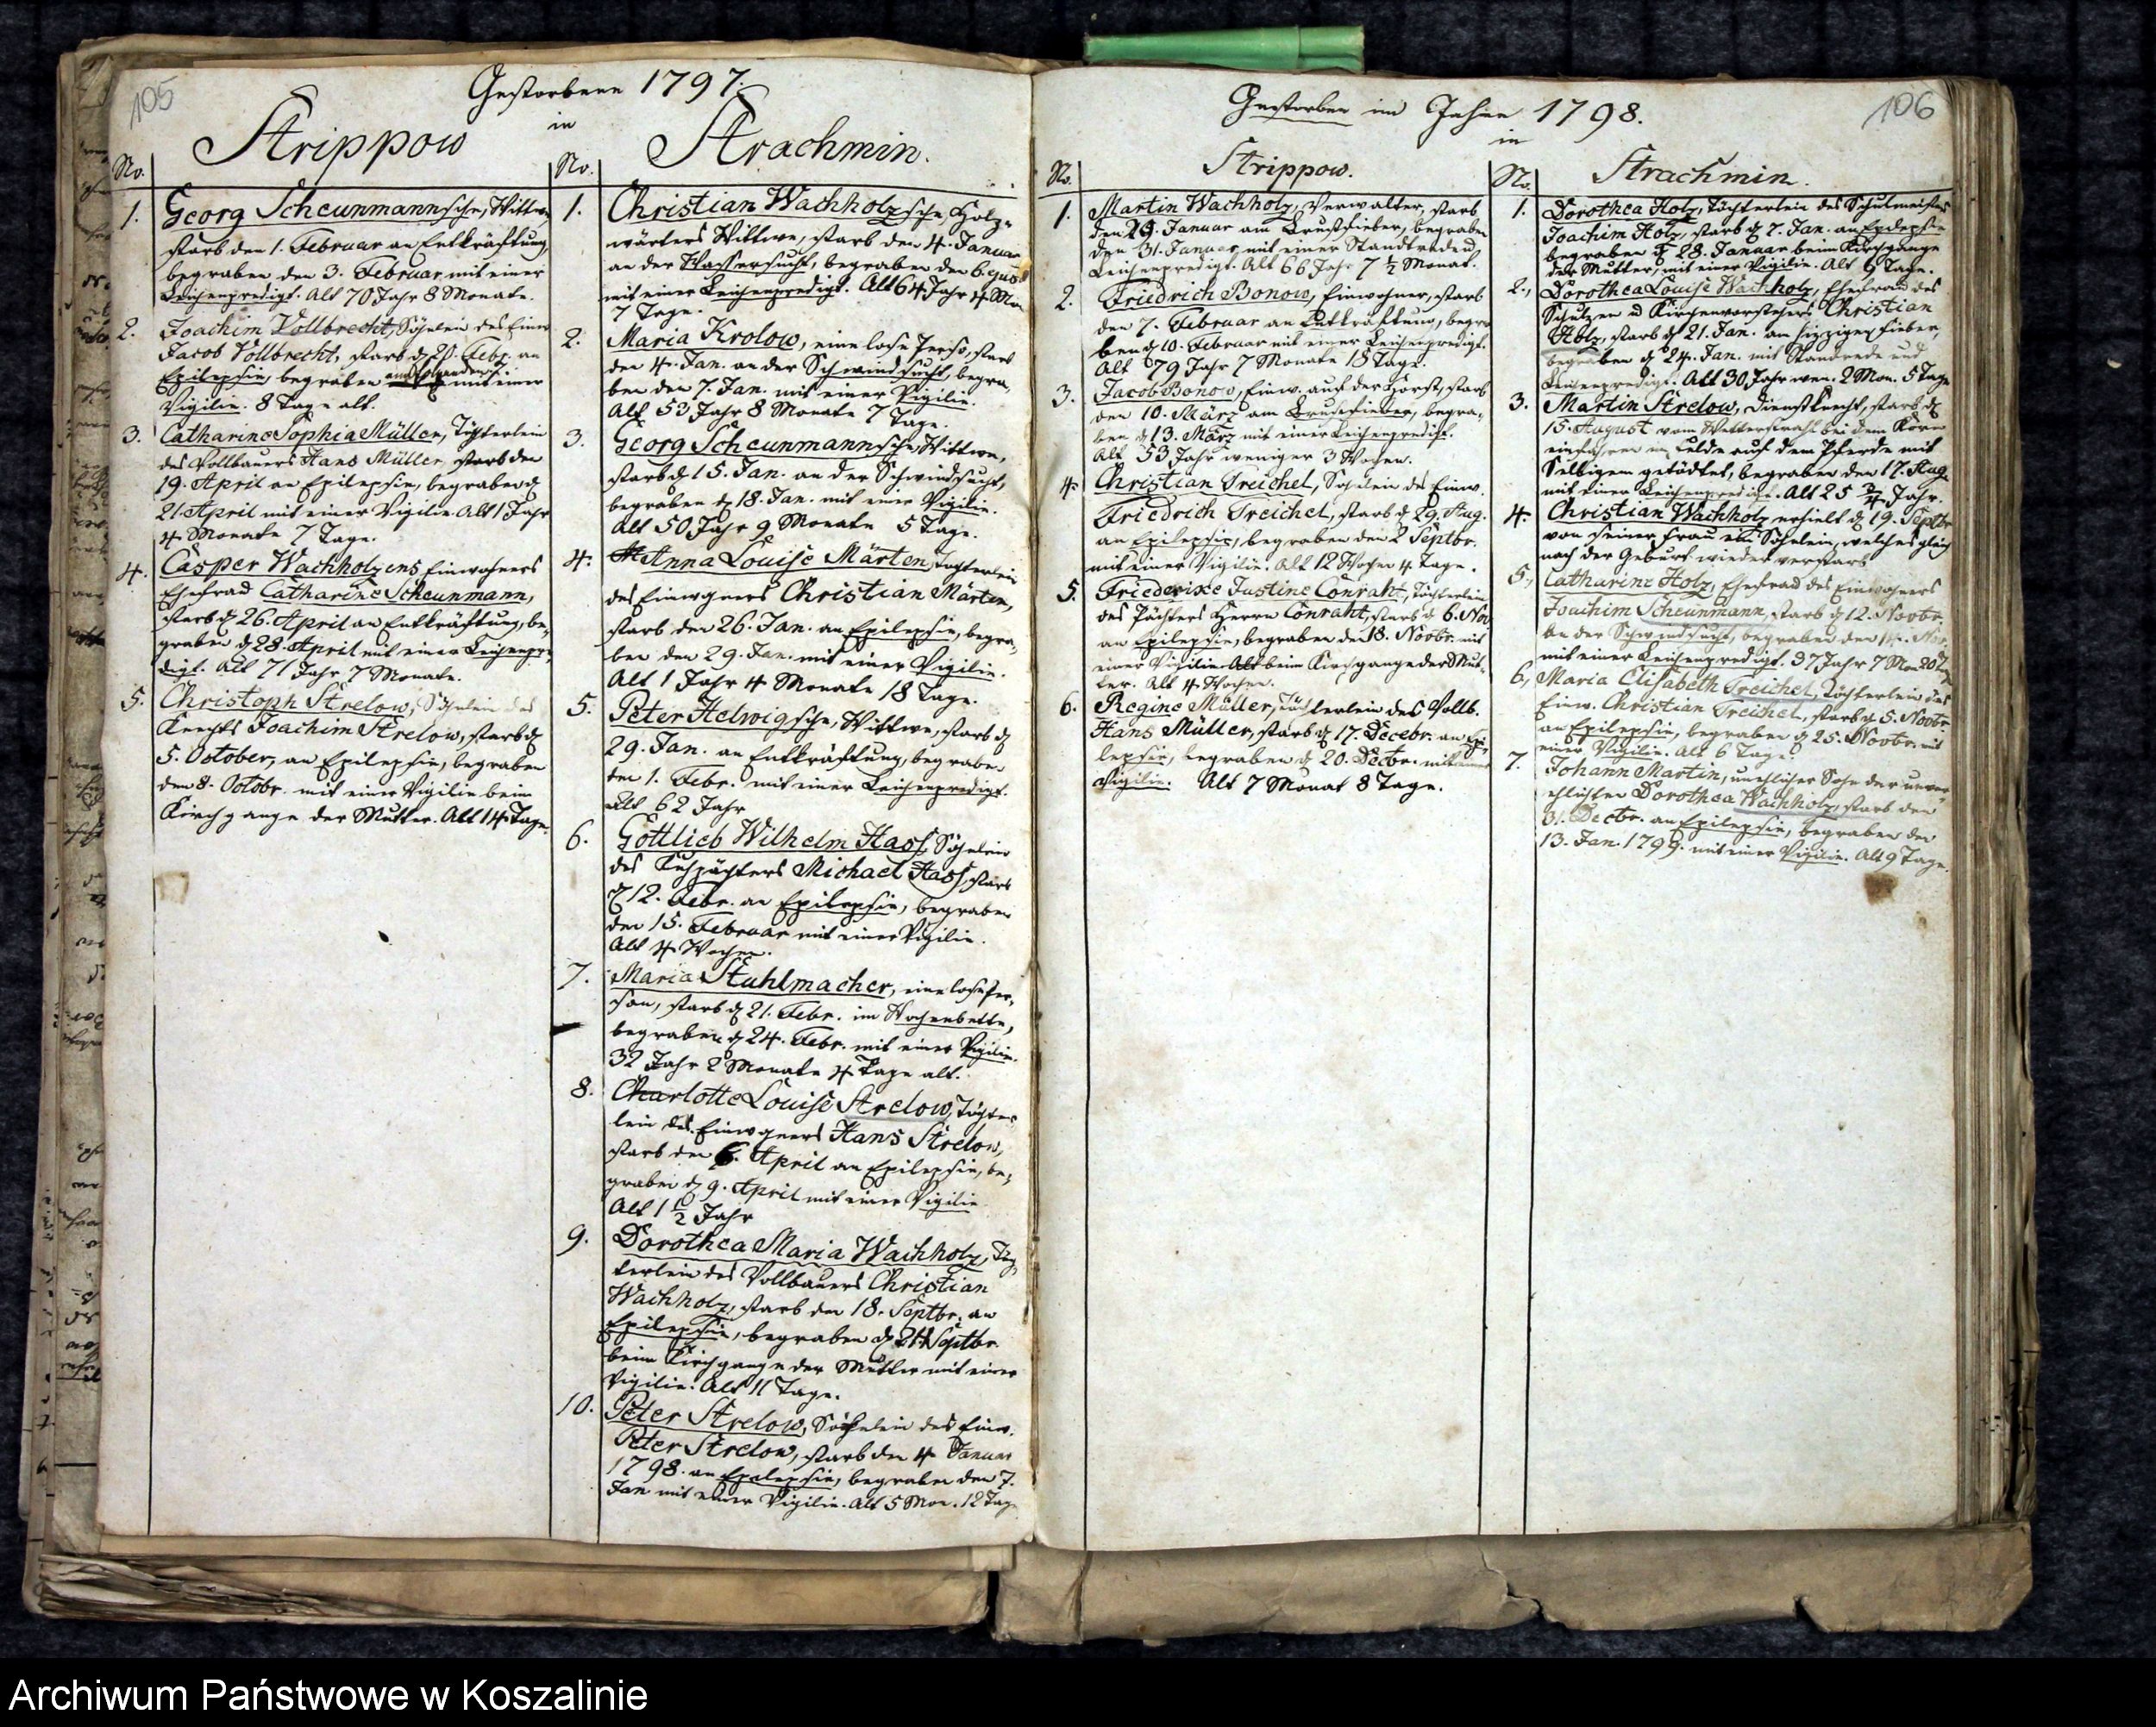 105
Gestorbene 1797.
in
Strippow
No.
1. Georg Scheunmannsche, Wittwe
starb den 1. Februar an Entkräftung,
begraben den 3. Februar mit einer
Leichenpredigt. Alt 70 Jahr 8 Monate.
2. Joachim Vollbrecht, Söhnlein des Einw.
Jacob Vollbrecht, starb d. Febr. an
Epilepsie, begraben mit einer
Vigilie. 8 Tage alt.
3. Catharine Sophia Müller, Töchterlein
des Vollbauers Hans Müller, starb den
19. April an Epilepsie, begraben d.
21. April mit einer Vigilie. Alt 1 Jahr
4 Monate 7 Tage.
4. Casper Wachholzens Einwohners
Ehefrau Catharine Scheunmann,
starb d. 26. April an Entkräftung, be-
graben d. 28. April mit einer Leichenpre-
digt. Alt 71 Jahr 7 Monate.
5. Christoph Strelow, Söhnlein des
Knechts Joachim Strelow, starb d.
5. October, an Epilepsie, begraben
den 8. Octobr. mit einer Vigilie beim
Kirchgange der Mutter. Alt 14 Tage.
Strachmin.
No.
1. Christian Wachholzsche, Holz-
wärters Wittwe, starb den 4. Januar
an der Wassersucht, begraben den 6.
mit einer Leichenpredigt. Alt 64 Jahr 4 Mon.
7 Tage.
2. Maria Krolow, eine lose Perso, starb
den 4. Jan. an der Schwindsucht, begra-
ben den 7. Jan. mit einer Vigilie.
Alt 53 Jahr 8 Monate 7 Tage.
3. Georg Scheunmannsche Wittwe,
starb d. 15. Jan. an der Schwindsucht,
begraben d. 18. Jan. mit einer Vigilie.
Alt 50 Jahr 9 Monate 5 Tage.
4. Anna Louise Märten, Töchterlein
des Einwohners Christian Märten,
starb den 26. Jan. an Epilepsie, begra-
ben den 29. Jan. mit einer Vigilie.
Alt 1 Jahr 4 Monate 18 Tage.
5. Peter Helwigsche, Wittwe, starb d.
29. Jan. an Entkräftung, begraben
den 1. Febr. mit einer Leichenpredigt.
Alt 62 Jahr
6. Gottlieb Wilhelm Hass, Söhnlein
des Kuhpächters Michael Hass, starb
d. 12. Febr. an Epilepsie, begraben
den 15. Februar mit einer Vigilie.
Alt 4 Wochen.
7. Maria Stuhlmacher, eine lose Per-
son, starb d. 21. Febr. im Wochenbette,
begraben d. 24. Febr. mit einer Vigilie.
32 Jahr 2 Monate 4 Tage alt.
8. Charlotte Louise Strelow, Töchter-
lein des Einwohners Hans Strelow,
starb den 6. April an Epilepsie, be-
graben d. 9. April mit einer Vigilie
Alt 1 1/2 Jahr
9. Dorothea Maria Wachholz, Töch-
terlein des Vollbauers Christian
Wachholz, starb den 18. Septbr. an
Epilepsie, begraben d. Septbr.
beim Kirchgange der Mutter mit einer
Vigilie. Alt 11 Tage.
10. Peter Strelow, Söhnlein des Einw.
Peter Strelow, starb den 4 Januar
1798. an Epilepsie, begraben den 7.
Jan mit einer Vigilie. Alt 5 Mon. 12 Tage
106
Gestorben im Jahre 1798.
in
Strippow.
No.
1. Martin Wachholz, Verwalter, starb
den 29. Januar am Brustfieber, begraben
den 31. Januar mit einer Standreden,
Leichenpredigt. Alt 66 Jahr 7 1/2 Monat.
2. Friedrich Bonow, Einwohner, starb
den 7. Februar an Entkräftung, begra-
ben d. 10. Februar mit einer Leichenpredigt.
Alt 79 Jahr 7 Monate 18 Tage.
3. Jacob Bonow, Einw. auf der Horst, starb
den 10. März am Brustfieber, begra-
ben d. 13. März mit einer Leichenpredigt.
Alt 53 Jahr weniger 3 Wochen.
4. Christian Treichel, Söhnlein des Einw.
Friedrich Treichel, starb d. 29. Aug.
an Epilepsie, begraben den 2 Septbr.
mit einer Vigilie. Alt 12 Wochen 4 Tage.
5. Friederike Justine Conraht, Töchterlein
des Pächters Herrn Conraht, starb d. 6. Nov.
an Epilepsie, begraben den 18. Novbr. mit
einer Vigilie beim Kirchgange der Mut-
ter. Alt 4 Wochen.
6. Regine Müller, Töchterlein des Vollb.
Hans Müller, starb d. 17. Decebr. an Epi-
lepsie, begraben d. 20. Decbr. mit einer
Vigilie. Alt 7 Monat 8 Tage.
Strachmin.
No.
1. Dorothea Holz, Töchterlein des Schulmeisters
Joachim Holz, starb d. 7. Jan. an Epilepsie
begraben d. 28. Januar beim Kirchgange
der Mutter, mit einer Vigilie. Alt 9 Tage.
2., Dorothea Louise Wachholz, Ehefrau des
Schulzen u Kirchenvorstehers Christian
Holz, starb d. 21. Jan. am hizzigen Fieber,
begraben d. 24. Jan. mit Standrede und
Leichenpredigt. Alt 30 Jahr wen. 2 Mon. 5 Tage
3. Martin Strelow, Dienstknecht, starb d.
15. August vom Wetterstrahl bei dem Korn
einfahren im Felde auf dem Pferde mit
selbigem getödtet, begraben den 17. Aug.
mit einer Leichenpredigt. Alt 25 3/4 Jahr.
4. Christian Wachholz erhielt d. 19. Septbr
von seiner Frau ein Söhnlein, welches gleich
nach der Geburt wieder verstarb
5., Catharine Holz, Ehefrau des Einwohners
Joachim Scheunmann, starb d. 12. Novbr.
an der Schwindsucht, begraben den 14. Nov.
mit einer Leichenpredigt. 37 Jahr 7 Mon 20 T.
6., Maria Elisabeth Treichel, Töchterlein des
Einw. Christian Treichel, starb d. 5. Novbr
an Epilepsie, begraben d. 25. Novbr. mit
einer Vigilie. Alt 6 Tage.
7. Johann Martin, unehlicher Sohn der unver-
ehlichten Dorothea Wachholz, starb den
31. Decbr. an Epilepsie, begraben den
13. Jan. 1799. mit einer Vigilie. Alt 9 Tage.
Archiwum Państwowe w Koszalinie